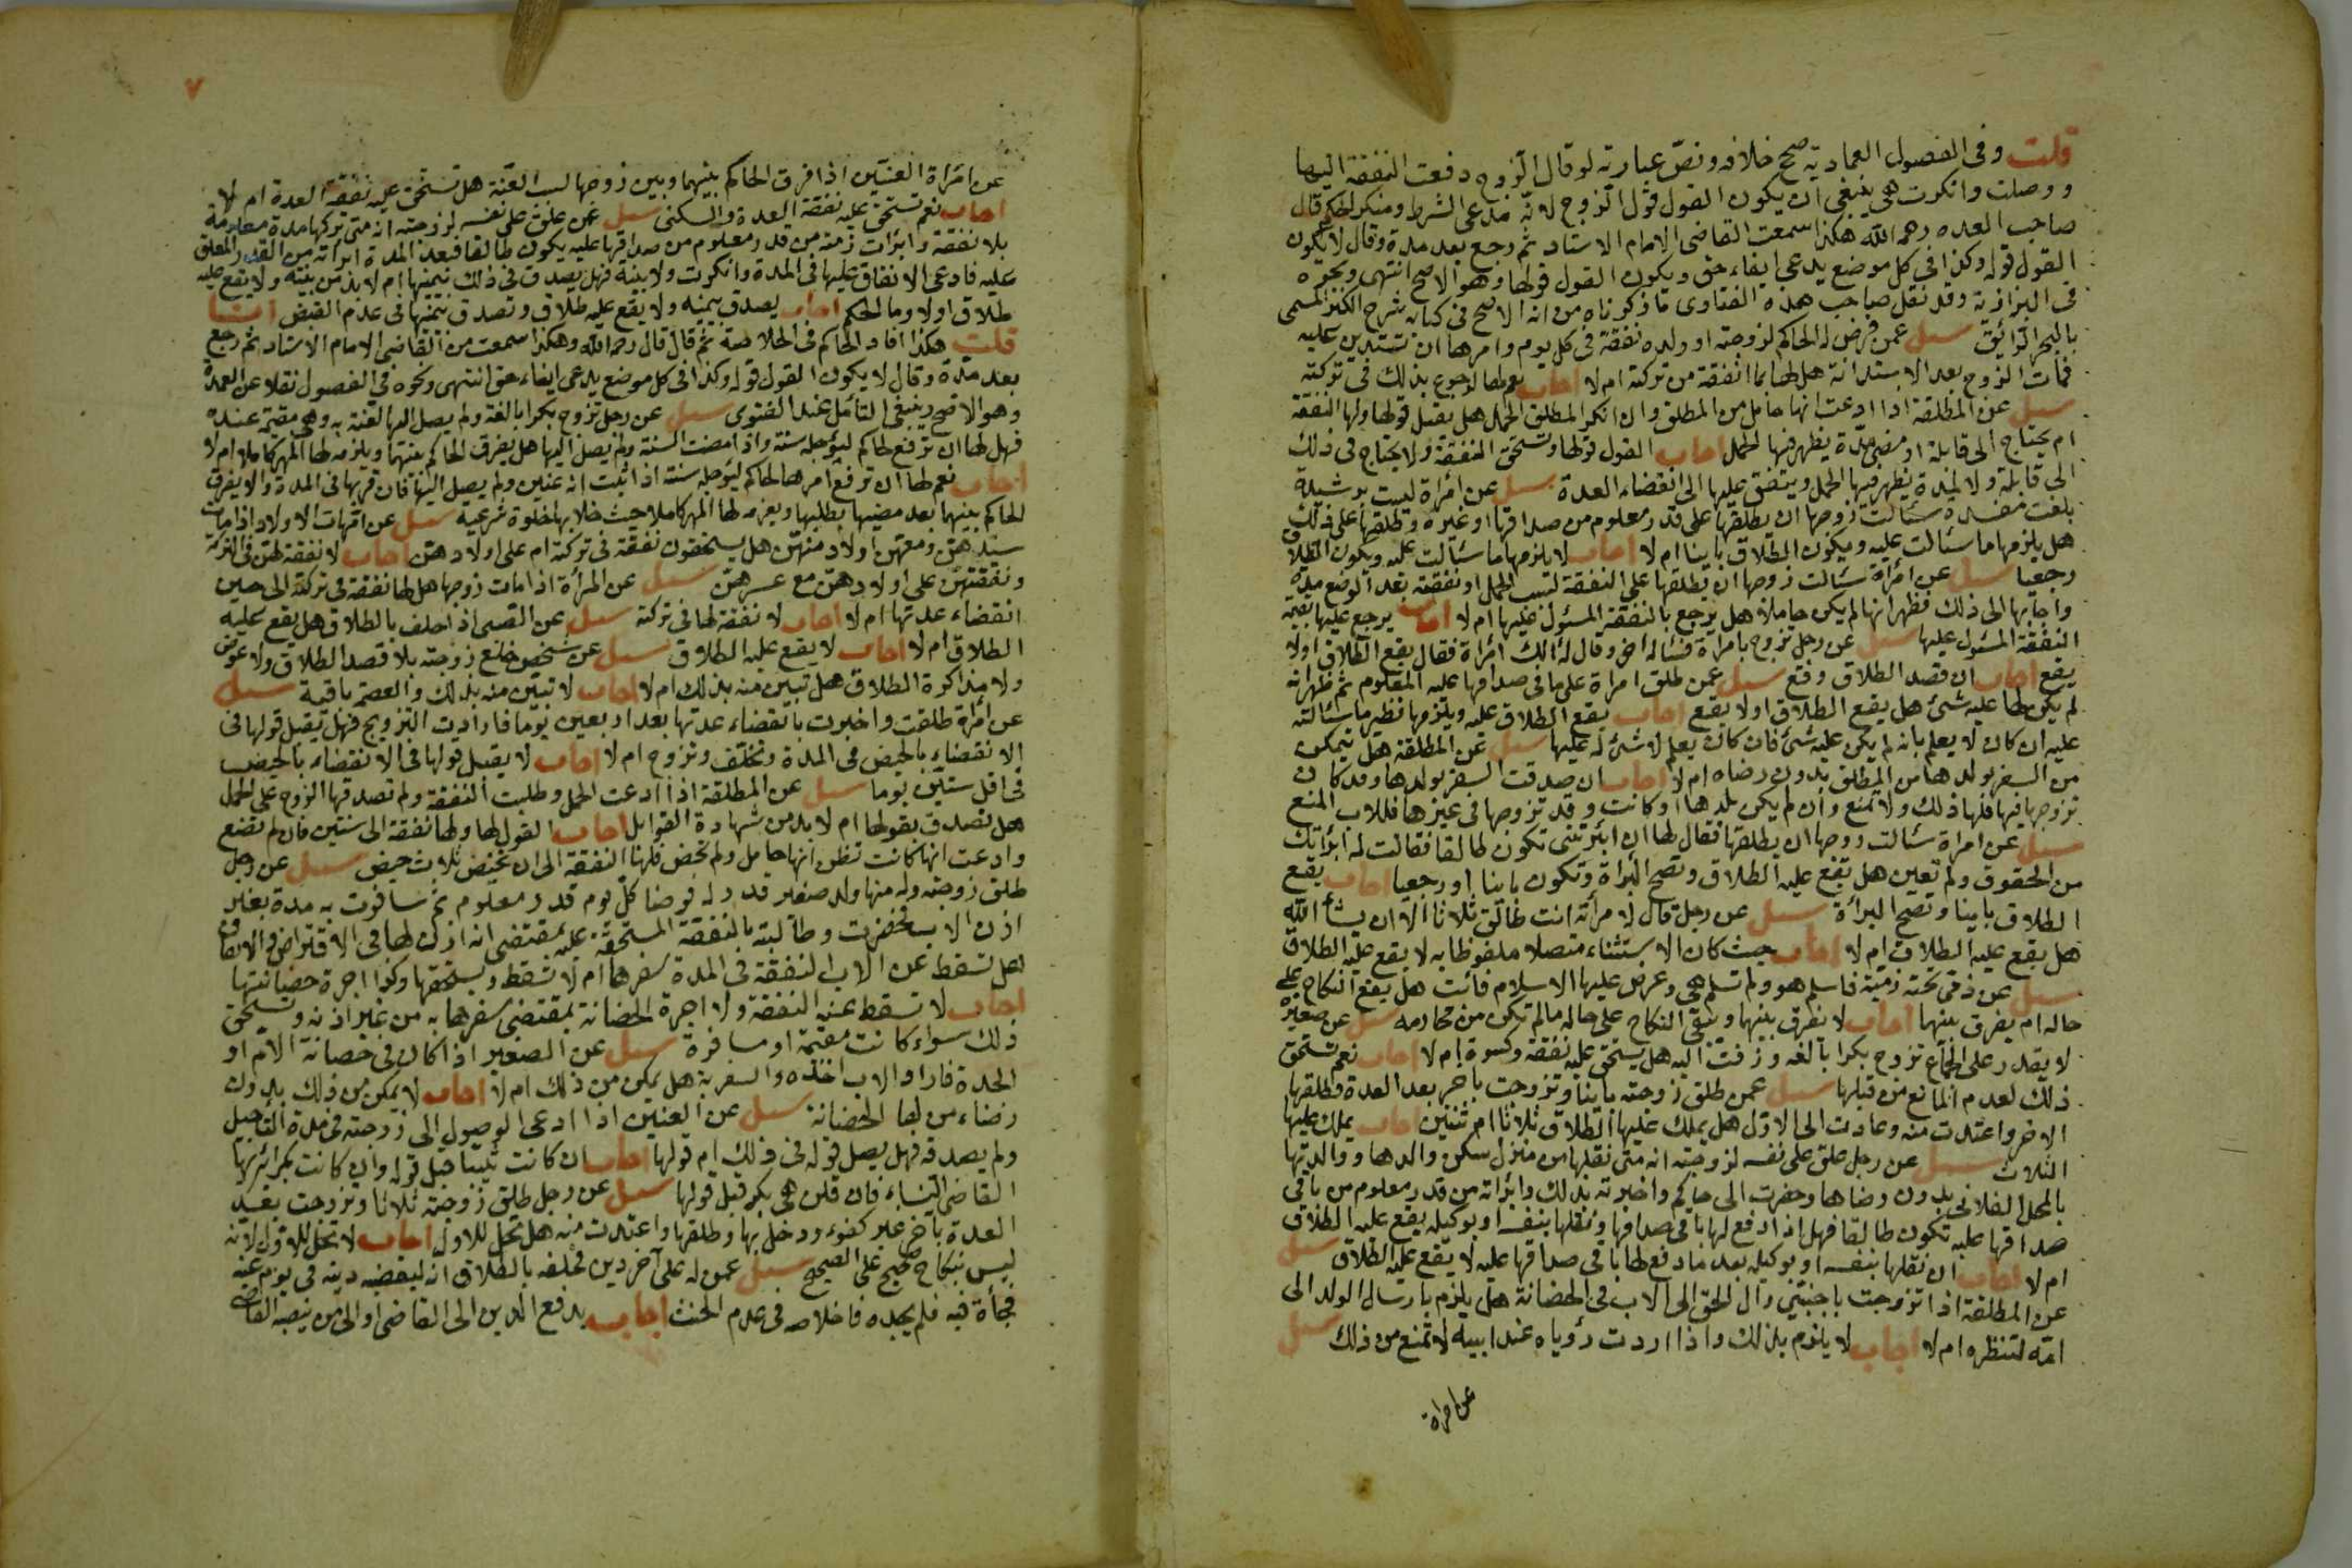 قلت وفى الفصول العمادية صحح خلافه ونص عبارته لو قال الزوج دفعت النفقة اليها
ووصلت وانكرت هى ينبغى ان يكون القول قول الزوج لانه مدعى الشرط ومنكر لحكم قال
صاحب العده رحمه الله هكذا سمعت القاضى الامام الاستاد ثم رجع بعد مدة وقال لا يكون
القول قوله وكذا فى كل موضع يدعى ايفاء حق ويكون القول قولها وهو الاصح انتهى ونحوه
فى البزازية وقد نقل صاحب هذه الفتاوى ما ذكرناه من انه الاصح فى كتابه شرح الكنز المسمى
بالبحر الرائق سئل عمن فرض له الحاكم لزوجته او ولده نفقة فى كل يوم وامرها ان تستدين عليه
فمات الزوج بعد الاستدانة هل لها بما انفقة من تركته ام لا اجاب نعم لها الرجوع بذلك فى تركته
سئل عن المطلقة اذا ادعت انها حامل من المطلق وان انكر المطلق الحمل هل يقبل قولها ولها النفقة
ام يحتاج الى قابلة او مضى مدة يظهر فيها الحمل اجاب القول قولها وتستحق النفقة ولا يحتاج فى ذلك
الى قابلة ولا لمدة يظهر فيها الحمل وينفق عليها الى انقضاء العدة سئل عن امراة ليست برشيدة
بلغت مفسدة سئالت زوجها ان يطلقها على قدر معلوم من صداقها او غيره وطلقها على ذلك
هل يلزمها ما سئالت عليه ويكون الطلاق باينا ام لا اجاب لا يلزمها ما سئالت عليه ويكون الطلاق
رجعيا سئل عن امراة سئالت زوجها ان يطلقها على النفقة لتسب الحمل او نفقته بعد الوضع مدة
واجابها الى ذلك فظهر انها لم يكن حاملا هل يرجع بالنفقة المسئول عليها ام لا اجاب يرجع عليها بقية
النفقة المسئول عليها سئل عن رجل تزوج بامراة فسئاله اخر وقال له الك امراة فقال يقع الطلاق اولا
يقع اجاب ان قصد الطلاق وقع سئل عمن طلق امراة على ما فى صداقها عليه المعلوم ثم ظهر انه
لم يكن لها عليه شىء هل يقع الطلاق اولا يقع اجاب يقع الطلاق عليه ويلزمها نظير ما سئالته
عليه ان كان لا يعلم بانه لم يكن عليه شىء فان كان يعلم لا شىء له عليها سئل عن المطلقة هل تتمكن
من السفر بولدها من المطلق بدون رضاه ام لا اجاب ان صدقت السفر بولدها وقد كان
تزوجها فيها فلها ذلك ولا تمنع وان لم يكن بلدها او كانت وقد تزوجها فى غيرها فللاب المنع
سئل عن امراة سئالت زوجها ان يطلقها فقال لها ان ابرئتنى تكون طالقا فقالت له ابرئتك
من الحقوق ولم تعين هل يقع عليه الطلاق وتصح البراة وتكون باينا او رجعيا اجاب يقع
الطلاق باينا وتصح البرأة سئل عن رجل قال لامرأته انت طالق ثلاثا الا ان يشأ الله
هل يقع عليه الطلاق ام لا اجاب حيث كان الاستثناء متصلا ملفوظا به لا يقع عليه الطلاق
سئل عن ذمى تحته ذمية فاسلم هو ولم تسلم هى وعرض عليها الاسلام فائت هل يقع النكاح على
حاله ام يفرق بينهما اجاب لا يفرق بينهما ويبقى النكاح على حاله ما لم تكن من محارمه سئل عن صغير
لا يقدر على الجماع تزوج بكرا بالغه وزفت اليه هل تستحق عليه نفقة وكسوة ام لا اجاب نعم تستحق
ذلك لعدم المانع من قبلها سئل عمن طلق زوجته باينا وتزوجت باخر بعد العدة وطلقها
الاخر واعتدت منه وعادت الى الاول هل يملك عليها الطلاق ثلاثا ام ثنتين اجاب يملك عليها
الثلاث سئل عن رجل علق على نفسه لزوجته انه متى نقلها من منزل سكن والدها ووالدتها
بالمحل الفلانى بدون رضاها وحضرت الى حاكم واخبرته بذلك وابراته من قدر معلوم من باقى
صداقها عليه تكون طالقا فهل اذا دفع لها باقى صداقها ونقلها بنفسه او بوكيله يقع عليه الطلاق
ام لا اجاب ان نقلها بنفسه او بوكيله بعد ما دفع لها باقى صداقها عليه لا يقع عليه الطلاق سئل
عن المطلقة اذا تزوجت باجنبى زال الحق الى الاب فى الحضانة هل يلزم بارسال الولد الى
امه لتنظره ام لا اجاب لا يلزم بذلك واذا اردت رؤياه عند ابيه لا تمنع من ذلك سئل
عن امراة
٧
عن امراة العنين اذا فرق الحاكم بينهما وبين زوجها لسبب العنة هل تستحق عليه نفقة العدة ام لا
اجاب نعم تستحق عليه نفقة العدة والسكنى سئل عمن علق على نفسه لزوجته انه متى تركها مدة معلومة
بلا نفقة وابرات ذمته من قدر معلوم من صداقها عليه يكون طالقا فبعد المدة ابراته من القدر المعلق
عليه فادعى الانفاق عليها فى المدة وانكرت ولا بينة فهل يصدق فى ذلك بيمينها ام لا بد من بينة ولا يقع عليه
طلاق اولا وما الحكم اجاب يصدق بيمينه ولا يقع عليه طلاق وتصدق بيمينها فى عدم القبض
قلت هكذا افاد الحاكم فى الخلاصة ثم قال قال رحمه الله وهكذا سمعت من القاضى الامام الاستاد ثم رجع
بعد مدة وقال لا يكون القول قوله وكذا فى كل موضع يدعى ايفاء حق انتهى ونحوه فى الفصول نقلا عن العدة
وهو الاصح ينبغى التأمل عند الفتوى سئل عن رجل تزوج بكرا بالغة ولم يصل اليها لعنة به وهى مقيمة عنده
فهل لها ان ترفع لحاكم ليؤجله سنة واذا مضت السنة ولم يصل اليها هل يفرق الحاكم بينهما ويلزمه لها المهر كاملا ام لا
اجاب نعم لها ان ترفع امرها لحاكم ليؤجله سنة اذا اثبت انه عنين ولم يصل اليها فان قربها فى المدة والا يفرق
الحاكم بينهما بعد مضيها بطلبها ويغرمه لها المهر كاملا حيث خلا بها خلوة شرعية سئل عن امهات الاولاد اذا مات
سيدهن ومعهن اولاد منهن هل يستحقون نفقة فى تركته ام على اولادهن اجاب لا نفقة لهن فى التركة
ونفقتهن على اولادهن مع عسرهن سئل عن المرأة اذا مات زوجها هل لها نفقة فى تركته الى حين
انقضاء عدتها ام لا اجاب لا نفقة لها فى تركته سئل عن الصبى اذا حلف بالطلاق هل يقع عليه
الطلاق ام لا اجاب لا يقع عليه الطلاق سئل عن شخص خلع زوجته بلا قصد الطلاق ولا عوض
ولا مذاكرة الطلاق هل تبين منه بذلك ام لا اجاب لا تبين منه بذلك والعصمة باقية سئل
عن امرة طلقت واخبرت بانقضاء عدتها بعد اربعين يوما فارادت التزويج فهل يقبل قولها فى
الانقضاء بالحيض فى المدة وتحلف وتزوج ام لا اجاب لا يقبل قولها فى الانقضاء بالحيض
فى اقل ستين يوما سئل عن المطلقة اذا ادعت الحمل وطلبت النفقة ولم تصدقها الزوج على الحمل
هل تصدق بقولها ام لا بد من شهادة القوابل اجاب القول لها ولها نفقة الى سنتين فان لم تضع
وادعت انها كانت تظن انها حامل ولم تحض فلها النفقة الى ان تحيض ثلاث حيض سئل عن رجل
طلق زوجته وله منها ولد صغير قدر له فرضا كل يوم قدر معلوم ثم سافرت به مدة بغير
اذن الاب فحضرت وطالبته بالنفقة المستحقة عليه بمقتضى انه اذن لها فى الاقتراض والانفاق
هل تسقط عن الاب النفقة فى المدة سفرها ام لا تسقط ويستحقها وكذا اجرة حضانتها
اجاب لا تسقط عنه النفقة ولا اجرة الحضانة بمقتضى سفرها به من غير اذنه وتستحق
ذلك سواء كانت مقيمة او مسافرة سئل عن الصغير اذا كان فى حضانة الام او
الجدة فاراد الاب اخذه والسفر به هل يمكن من ذلك ام لا اجاب لا يمكن من ذلك بدون
رضاء من لها الحضانة سئل عن العنين اذا ادعى الوصول الى زوجته فى مدة التأجيل
ولم يصدقه فهل يصل قوله فى ذلك ام قولها اجاب ان كانت ثيبا قبل قوله وان كانت بكرا يريها
القاضى النساء فان قلن هى بكر قبل قولها سئل عن رجل طلق زوجته ثلاثا وتزوجت بعد
العدة باخر غير كفوء ودخل بها وطلقها واعتدت منه هل تحل للاول اجاب لا تحل للاول لانه
ليس بنكاح صحيح على الصحيح سئل عمن له على آخر دين فحلفه بالطلاق انه ليقضه دينه فى يوم عينه
فجأة فيه فلم يجده فاخلاصه فى عدم الحنث اجاب يدفع الدين الى القاضى او الى من ينصبه القاضى